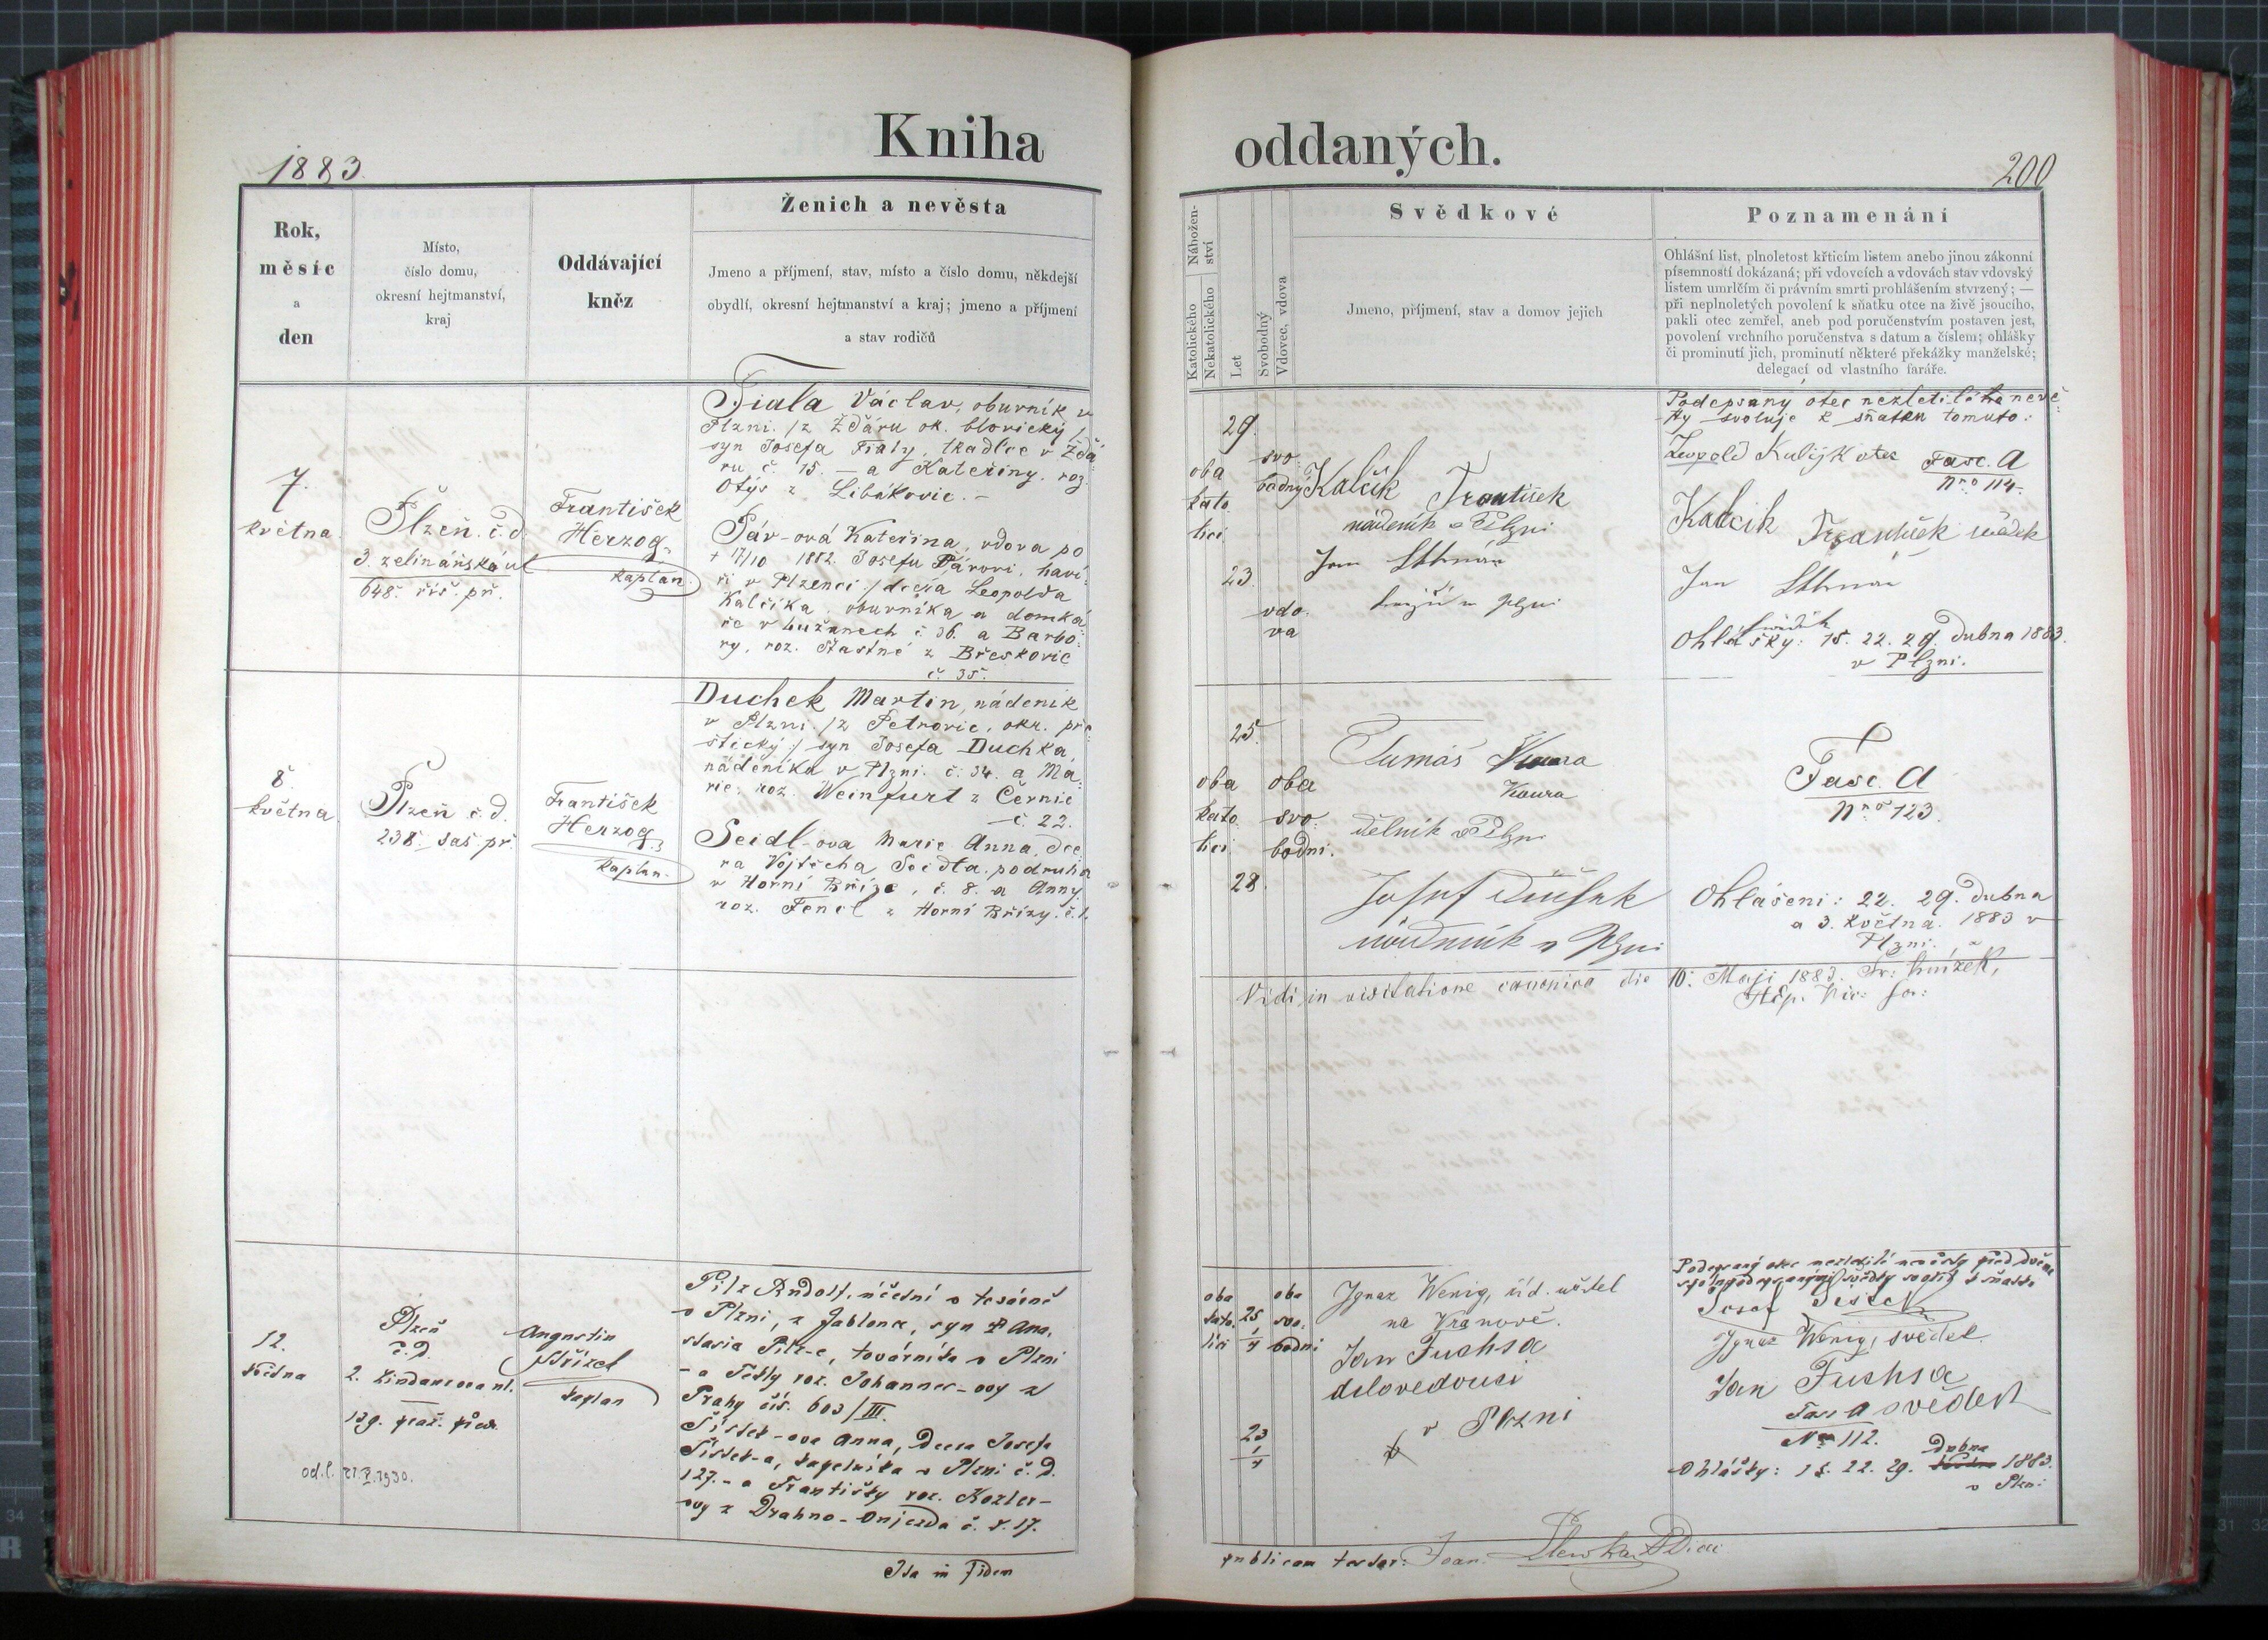 Kniha oddaných.
1883
200
Rok,
měsíc
a
den
Místo,
číslo domu,
okresní hejtmanství,
kraj
Oddávající
kněz
Ženich a nevěsta
Jmeno a příjmení, stav, místo a číslo domu, někdejší
obydlí, okresní hejtmanství a kraj; jmeno a příjmení
a stav rodičů
Nábožen-
ství
Katolického
Nekatolického
Let
Svobodný
Vdovec, vdova
Svědkové
Jmeno, příjmení, stav a domov jejich
Poznamenání
Ohlášní list, plnoletost křticím listem anebo jinou zákonní
písemností dokázaná; při vdovcích a vdovách stav vdovský
listem umrlčím či právním smrti prohlášením stvrzený; —
při neplnoletých povolení k sňatku otce na živě jsoucího,
pakli otec zemřel, aneb pod poručenstvím postaven jest,
povolení vrchního poručenstva s datum a číslem; ohlášky
či prominutí jich, prominutí některé překážky manželské;
delegací od vlastního faráře.
7.
května
Plzeň. č. d.
3. zelinářská ul
648. říš. př.
František
Herzog
kaplan
Fiala Václav, oburník v
Plzni. /z Ždáru ok. blovický/
syn Josefa Fialy, tkadlce v Ždá-
ru č. 15. — a Kateřiny. roz.
Otýs z Libákovic. —
Páv-ová Kateřina, vdova po
+ 17/10 1882. Josefu Pávovi, haví-
ři v Plzenci /dcera Leopolda
Kalčíka, oburníka a domká-
ře v Lužanech č 36. a Barbo-
ry, roz. Šťastné z Břeskovic
č. 35.
29.
oba
kato
lici
svo-
bodný
23.
vdo-
va
Kalčik František
nádeník v Plzni
Jan
Podepsaný otec nezletilého nevě-
sty svoluje k sňatku tomuto:
Leopold Kalčjk otec
Fasc. A
Nro 114.
Kalcik František svědek
Jan
svědek
Ohlášky: 15. 22. 29. dubna 1883.
v Plzni.
8.
května
Plzeň č. d.
238. sas. př.
František
Herzog
kaplan
Duchek Martin, nádeník
v Plzni. /z Petrovic, okr. pře-
štický/ syn Josefa Duchka,
nádeníka v Plzni. č. 34. a Ma-
rie, roz. Weinfurt z Černic
č. 22.
Seidl-ova Marie Anna, dce-
ra Vojtěcha Seidla, podruha
v Horní Bříze, č. 8. a Anny
roz. Fencl z Horní Břízy. č. 1.
25.
oba
kato
lici
oba
svo-
bodni.
28.
Tumáš Koura
Koura
dělník v Plzni
Josef Dušek
nádeník v Plzni
Fasc. A
Nro 123.
Ohlášeni: 22. 29. dubna
a 3. května. 1883 v
Plzni.
Vidi in visitatione canonica die 10. Maji 1883. Fr:
Vic: for:
12.
května
Plzeň
č. D.
2. Lindauerova ul.
139. praž. před.
Augustin
Střízek
kaplan
od. l. 21.X.1930.
Pilz Rudolf, účetní v továrně
v Plzni, z Jablonce, syn Ana-
stasia Pilz-e, továrníka v Plzni
- a Tekly roz. Johannes-ovy z
Prahy čís. 603/III.
Šístek-ova Anna, Dcera Josefa
Šístek-a, kapelníka v Plzni č. D.
127. - a Františky roz. Kozler-
ovy z Drahno-Oujezda č. 17.
oba
kato-
lici
25
1/4
oba
svo-
bodni
23
1/4
Ignaz Wenig, říd. učitel
na Vranově.
Jan Fuchsa
dělovedouci
v Plzni
Podepsaný otec nezletilé nevěsty před dvěma
spolupodepsanými svědky svolil k sňatku
Josef Šístek
Ignaz Wenig, svědek
Jan Fuchsa
svědek
Fasc A
Nro 112.
Ohlášky: 15. 22. 29. Dubna 1883.
v Plzni
Ita in Fidem
publicam testor: Joan.